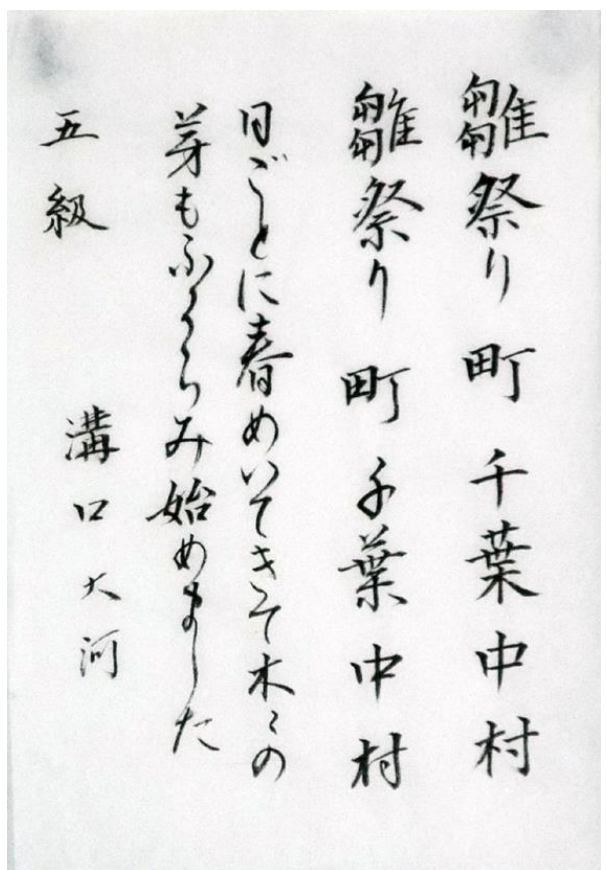 雛祭り 町 千葉中村
雛祭り 町 千葉中村
日ごとに春めいてきて木々の
芽もふくらみ始めました
五級 溝口大河